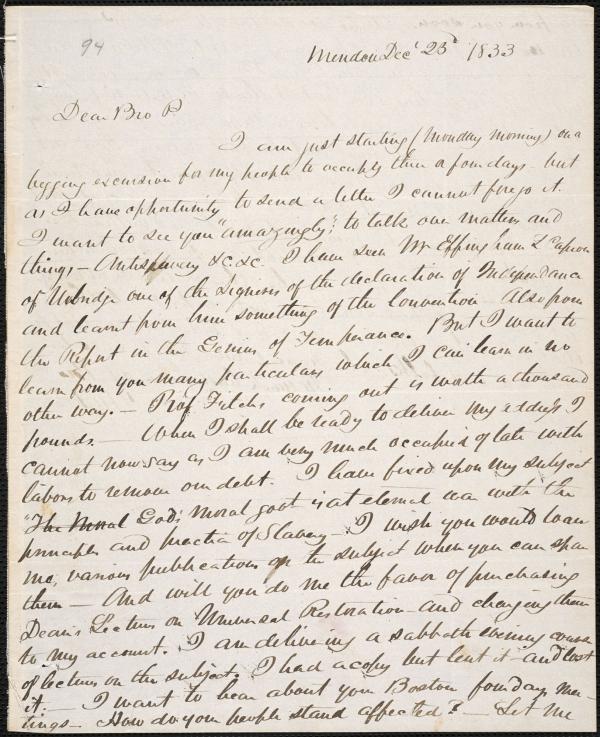 94
Mendon Decr 23d 1833
Dear Bro P
I am just starting (Monday morning) on a
begging excursion for my people to occupy three or four days - but
as I have opportunity to send a letter I cannot forego it.
I want to see you "amazingly", to talk over matters and
things - Antislavery &c. &c. I have seen Mr Effingham L Capron
of Uxbridge one of the signers of the declaration of Independence
and learnt from him something of the Convention - Also from
the Report in the Genius of Temperance. But I want to
learn from you many particulars which I can learn in no
other way. - Prof Fitch's coming out is worth a thousand
pounds. - When I shall be ready to deliver my address I
cannot now say as I am very much occupied of late with
labors to remove our debt. I have fixed upon my subject
"The Moral God's moral govt is at eternal war with the
principles and practice of Slavery - I wish you would loan
me, various publications on the subject when you can spare
them - And will you do me the favor of purchasing
Dean's Lectures on Universal Restoration - and charging them
to my account. I am delivering a sabbath evening course
of lectures on the subject. I had a copy but lent it and lost
it. - I want to hear about your Boston four days mee-
tings - How do your people stand affected? - Let me